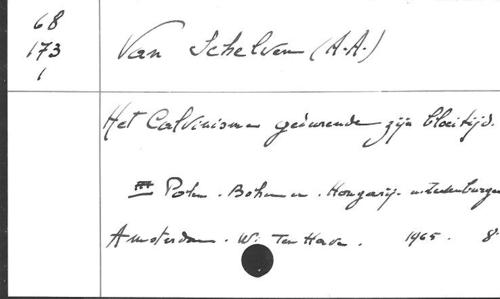 68
173
1
Van Schelven (A.A.)
Het Calvinisme gedurende zijn bloeitijd.
III Polen. Bohemen. Hongarij. en Zevenburgen
Amsterdam. W. Ten Have. 1965. 8°